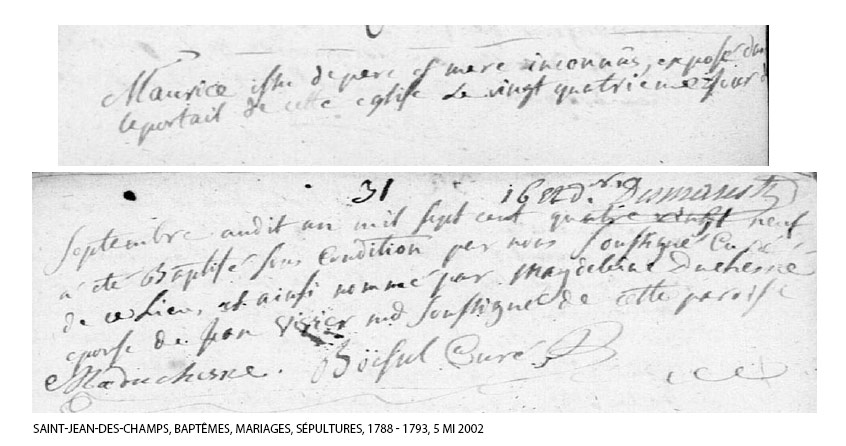 Maurice issu de pere et mere inconnûs, exposé dans
le portail de cette eglise Le vingt quatrieme jour de
31 16 et d.
Septembre audit an mil sept cent quatre vingt neuf
a été Baptisé sous Condition par nous soussigné Curé
de ce Lieu, et ainsi nommé par Magdeleine Duchesne
epouse de Jean Vivier md soussignee de cette paroisse
MaDuchesne. Boisul Curé
SAINT-JEAN-DES-CHAMPS, BAPTÊMES, MARIAGES, SÉPULTURES, 1788 - 1793, 5 MI 2002